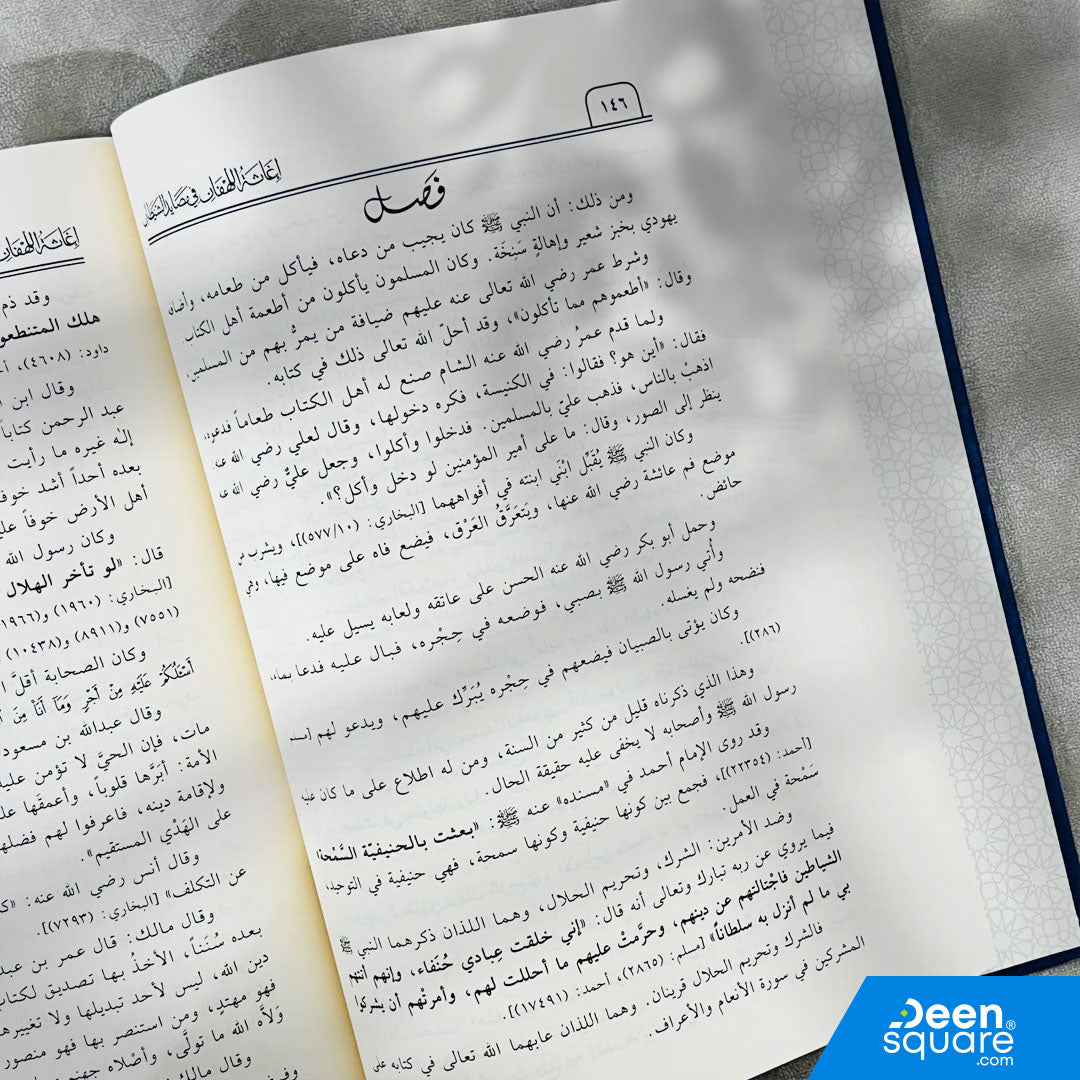 ١٤٦
إغاثة اللهفان في مصايد الشيطان
فصل
ومن ذلك: أن النبي ﷺ كان يجيب من دعاه، فيأكل من طعامه، وأضافه
يهودي بخبز شعير وإهالةٍ سَنِخَة. وكان المسلمون يأكلون من أطعمة أهل الكتاب.
وشرط عمر رضي الله تعالى عنه عليهم ضيافة من يمرُّ بهم من المسلمين،
وقال: «أطعموهم مما تأكلون»، وقد أحلّ الله تعالى ذلك في كتابه.
ولما قدم عمرُ رضي الله عنه الشام صنع له أهل الكتاب طعاماً فدعوه،
فقال: «أين هو؟ فقالوا: في الكنيسة، فكره دخولها، وقال لعلي رضي الله عنه:
اذهبْ بالناس، فذهب عليّ بالمسلمين. فدخلوا وأكلوا، وجعل عليٌّ رضي الله عنه
ينظر إلى الصور، وقال: ما على أمير المؤمنين لو دخل وأكل؟».
وكان النبي ﷺ يُقَبِّل ابْنَي ابنته في أفواههما [البخاري: (٥٧٧/١٠)]، ويشرب من
موضع فم عائشة رضي الله عنها، ويَتعَرَّقُ العَرْق، فيضع فاه على موضع فيها، وهي
حائض.
وحمل أبو بكر رضي الله عنه الحسن على عاتقه ولعابه يسيل عليه.
وأُتي رسول الله ﷺ بصبي، فوضعه في حِجْره، فبال عليه فدعا بماء،
فنضحه ولم يغسله.
وكان يؤتى بالصبيان فيضعهم في حِجْره يُبَرِّك عليهم، ويدعو لهم [مسلم:
(٢٨٦)].
وهذا الذي ذكرناه قليل من كثير من السنة، ومن له اطلاع على ما كان عليه
رسول الله ﷺ وأصحابه لا يخفى عليه حقيقة الحال.
وقد روى الإمام أحمد في «مسنده» عنه ﷺ: «بعثت بالحنيفيّة السَّمْحة»
[أحمد: (٢٢٣٥٤)]، فجمع بين كونها حنيفية وكونها سمحة، فهي حنيفية في التوحيد،
سَمْحة في العمل.
وضد الأمرين: الشرك، وتحريم الحلال، وهما اللذان ذكرهما النبي ﷺ
فيما يروي عن ربه تبارك وتعالى أنه قال: «إني خلقت عبادي حُنَفاء، وإنهم أتتهم
الشياطين فاجْتالتهم عن دينهم، وحرَّمتْ عليهم ما أحللت لهم، وأمرتْهم أن يشركوا
بي ما لم أنزل به سلطاناً» [مسلم: (٢٨٦٥)، أحمد: (١٧٤٩١)].
فالشرك وتحريم الحلال قرينان. وهما اللذان عابهما الله تعالى في كتابه على
المشركين في سورة الأنعام والأعراف.
إغاثة اللهفان
وقد ذم
هلك المتنطعو
داود: (٤٦٠٨)،
وقال ابن
عبد الرحمن كتاباً
إله غيره ما رأيت
بعده أحداً أشد خوفاً
أهل الأرض خوفاً
وكان رسول الله
قال: «لو تأخر الهلال
[البخاري: (١٩٦٠) و(١٩٦٦)
(٧٥٥١) و(٨٩١١) و(١٠٤٣٨)
وكان الصحابة أقلَّ
أَسْئَلُكُمْ عَلَيْهِ مِنْ أَجْرٍ وَمَآ أَنَا مِنَ
وقال عبدالله بن مسعود
مات، فإن الحيَّ لا تؤمن عليه
الأمة: أبَرَّها قلوباً، وأعمقَها
ولإقامة دينه، فاعرفوا لهم فضلهم
على الهَدْي المستقيم».
وقال أنس رضي الله عنه:
عن التكلف» [البخاري: (٧٢٩٣)].
وقال مالك: قال عمر بن عبد
بعده سُنَناً، الأخذُ بها تصديق لكتاب
دين الله، ليس لأحد تبديلها ولا تغييرها
فهو مهتدٍ، ومن استنصر بها فهو منصور
ولَّاه الله ما تولَّى، وأصْلاه جهنم
وقال مالك
Deen®
square
.com